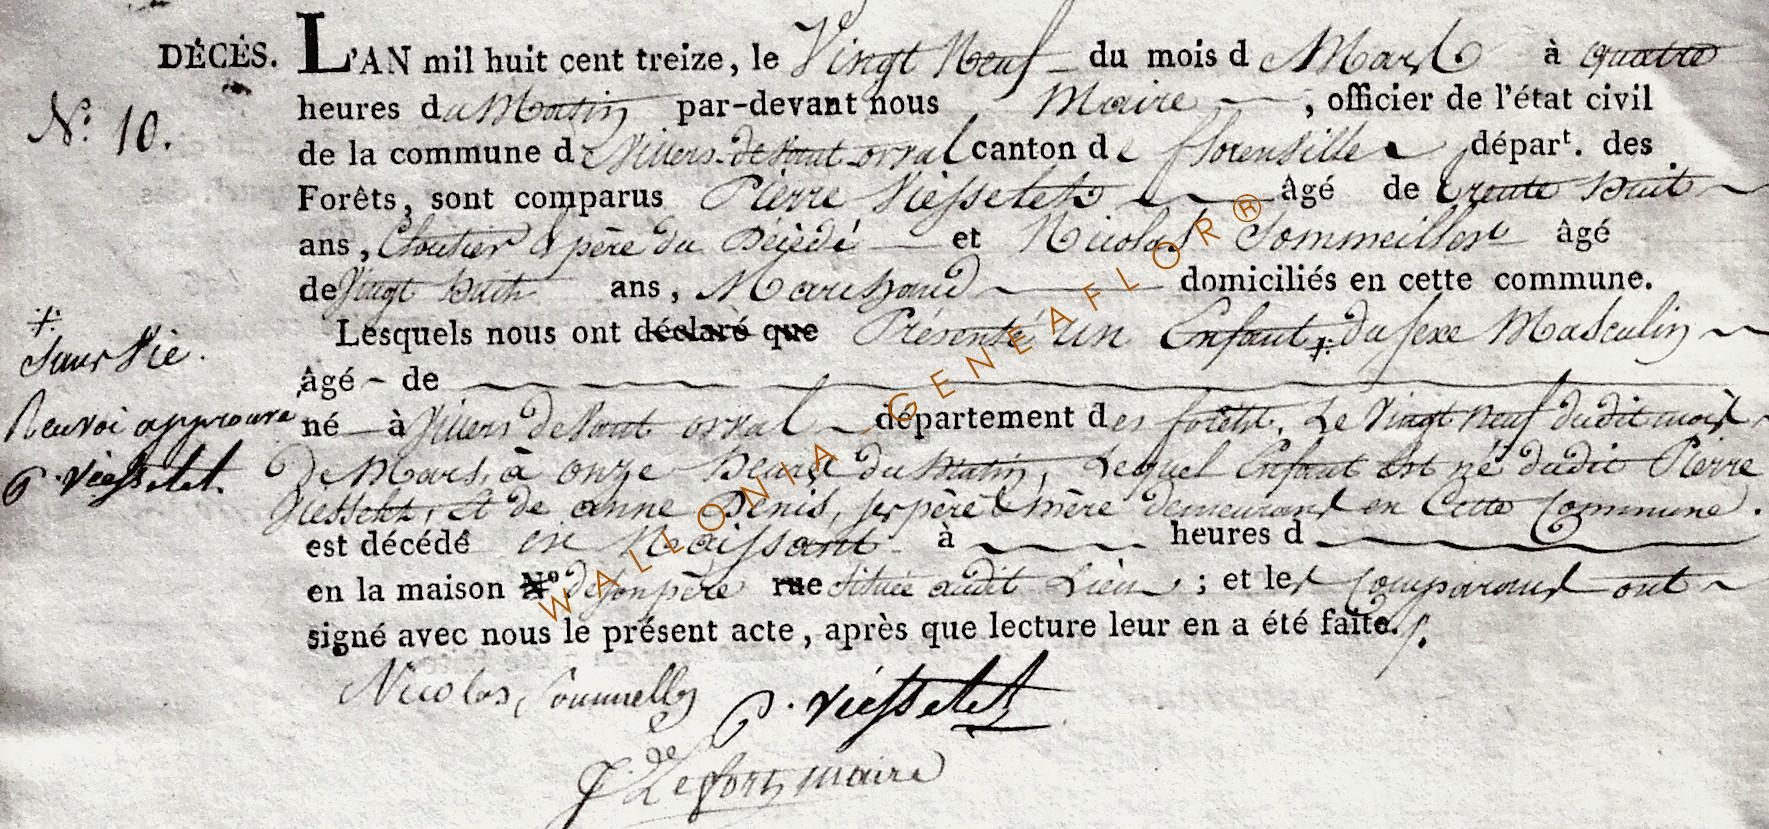 DÉCÈS. L'AN mil huit cent treize, le Vingt Neuf du mois d Mars à quatre
N.° 10.
heures du Matin par-devant nous Maire, officier de l'état civil
de la commune de Villers devant orval canton de florenville départ. des
Forêts, sont comparus Pierre Viesselets âgé de trente huit
ans, Cloutier & père du Décédé et Nicolas Sommeillers âgé
de Vingt huit ans, Marchand domiciliés en cette commune.
Lesquels nous ont déclaré que Présenté un Enfant +: du sexe Masculin
+:
sans Vie.
âgé de
Renvoi approuvé
né à Villers devant orval département des forêts, Le Vingt Neuf dudit mois
P. viesselet.
De Mars, à onze heures du Matin, Lequel Enfant Est né dudit Pierre
Viesselet, et de anne Denis, ses père & mère demeurant en Cette Commune.
est décédé en Naissant à heures d
en la maison N.° de son père rue située audit Lieu; et les Comparans ont
signé avec nous le présent acte, après que lecture leur en a été faite.
Nicolas P. viesselet
J. Lefort maire
WALLONIA - GENEAFLOR ®